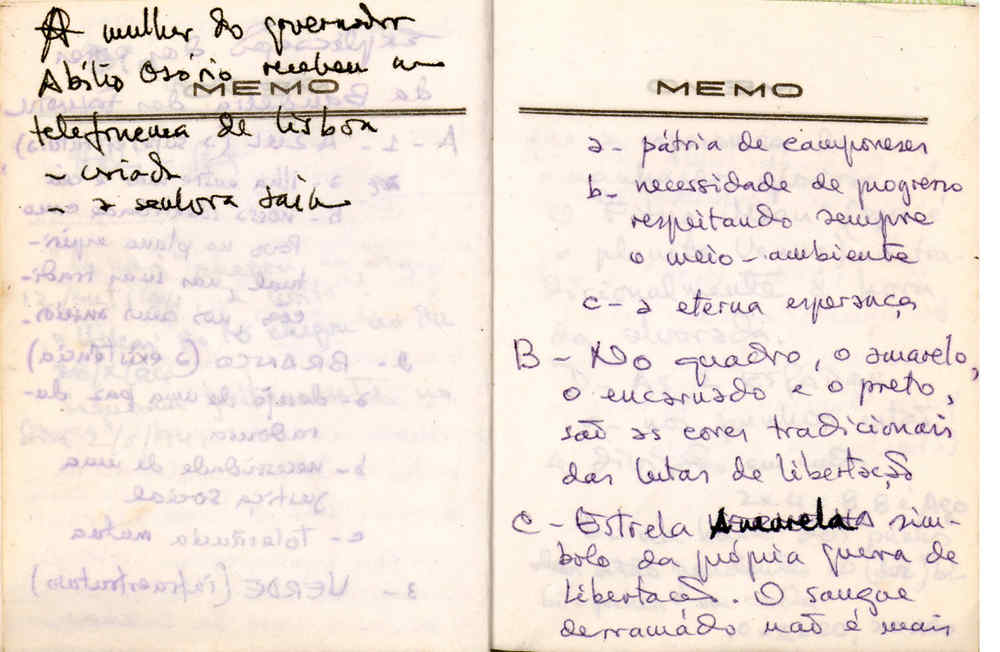 A mulher do governador
Abílio Osório recebeu um
MEMO
telefonema de Lisboa
- criada
- a senhora saiu
MEMO
a- pátria de camponeses
b- necessidade de progresso
respeitando sempre
o meio-ambiente
c- a eterna esperança
B - No quadro, o amarelo,
o encarnado e o preto,
são as cores tradicionais
das lutas de libertação
C - Estrela Amarela sím-
bolo da própria guerra de
libertação. O sangue
derramado não é mais